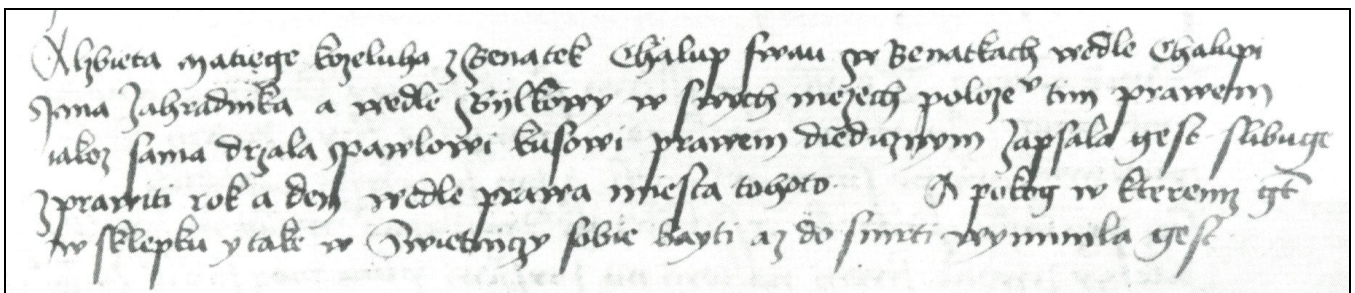 Alzbieta Matiege kozeluha z Benatek Chalup swau w Benatkach wedle Chalupi
Jana Zahradnika a wedle Bylkowy w swych mezech poloze tim prawem
iakoz sama drzala Pawlowi kusowi prawem diedicznym Zapsala gest slibuge
Zprawiti rok a den wedle prawa miesta tohoto A pokog w kteremz gt
w sklepku y take w Swietniczy sobie bayti az do smrti wyminila gest